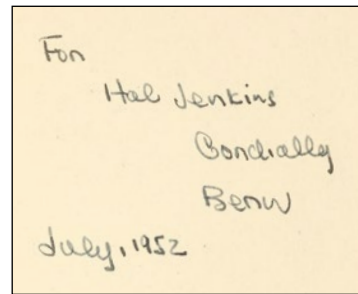 For
Hal Jenkins
Cordially
July, 1952